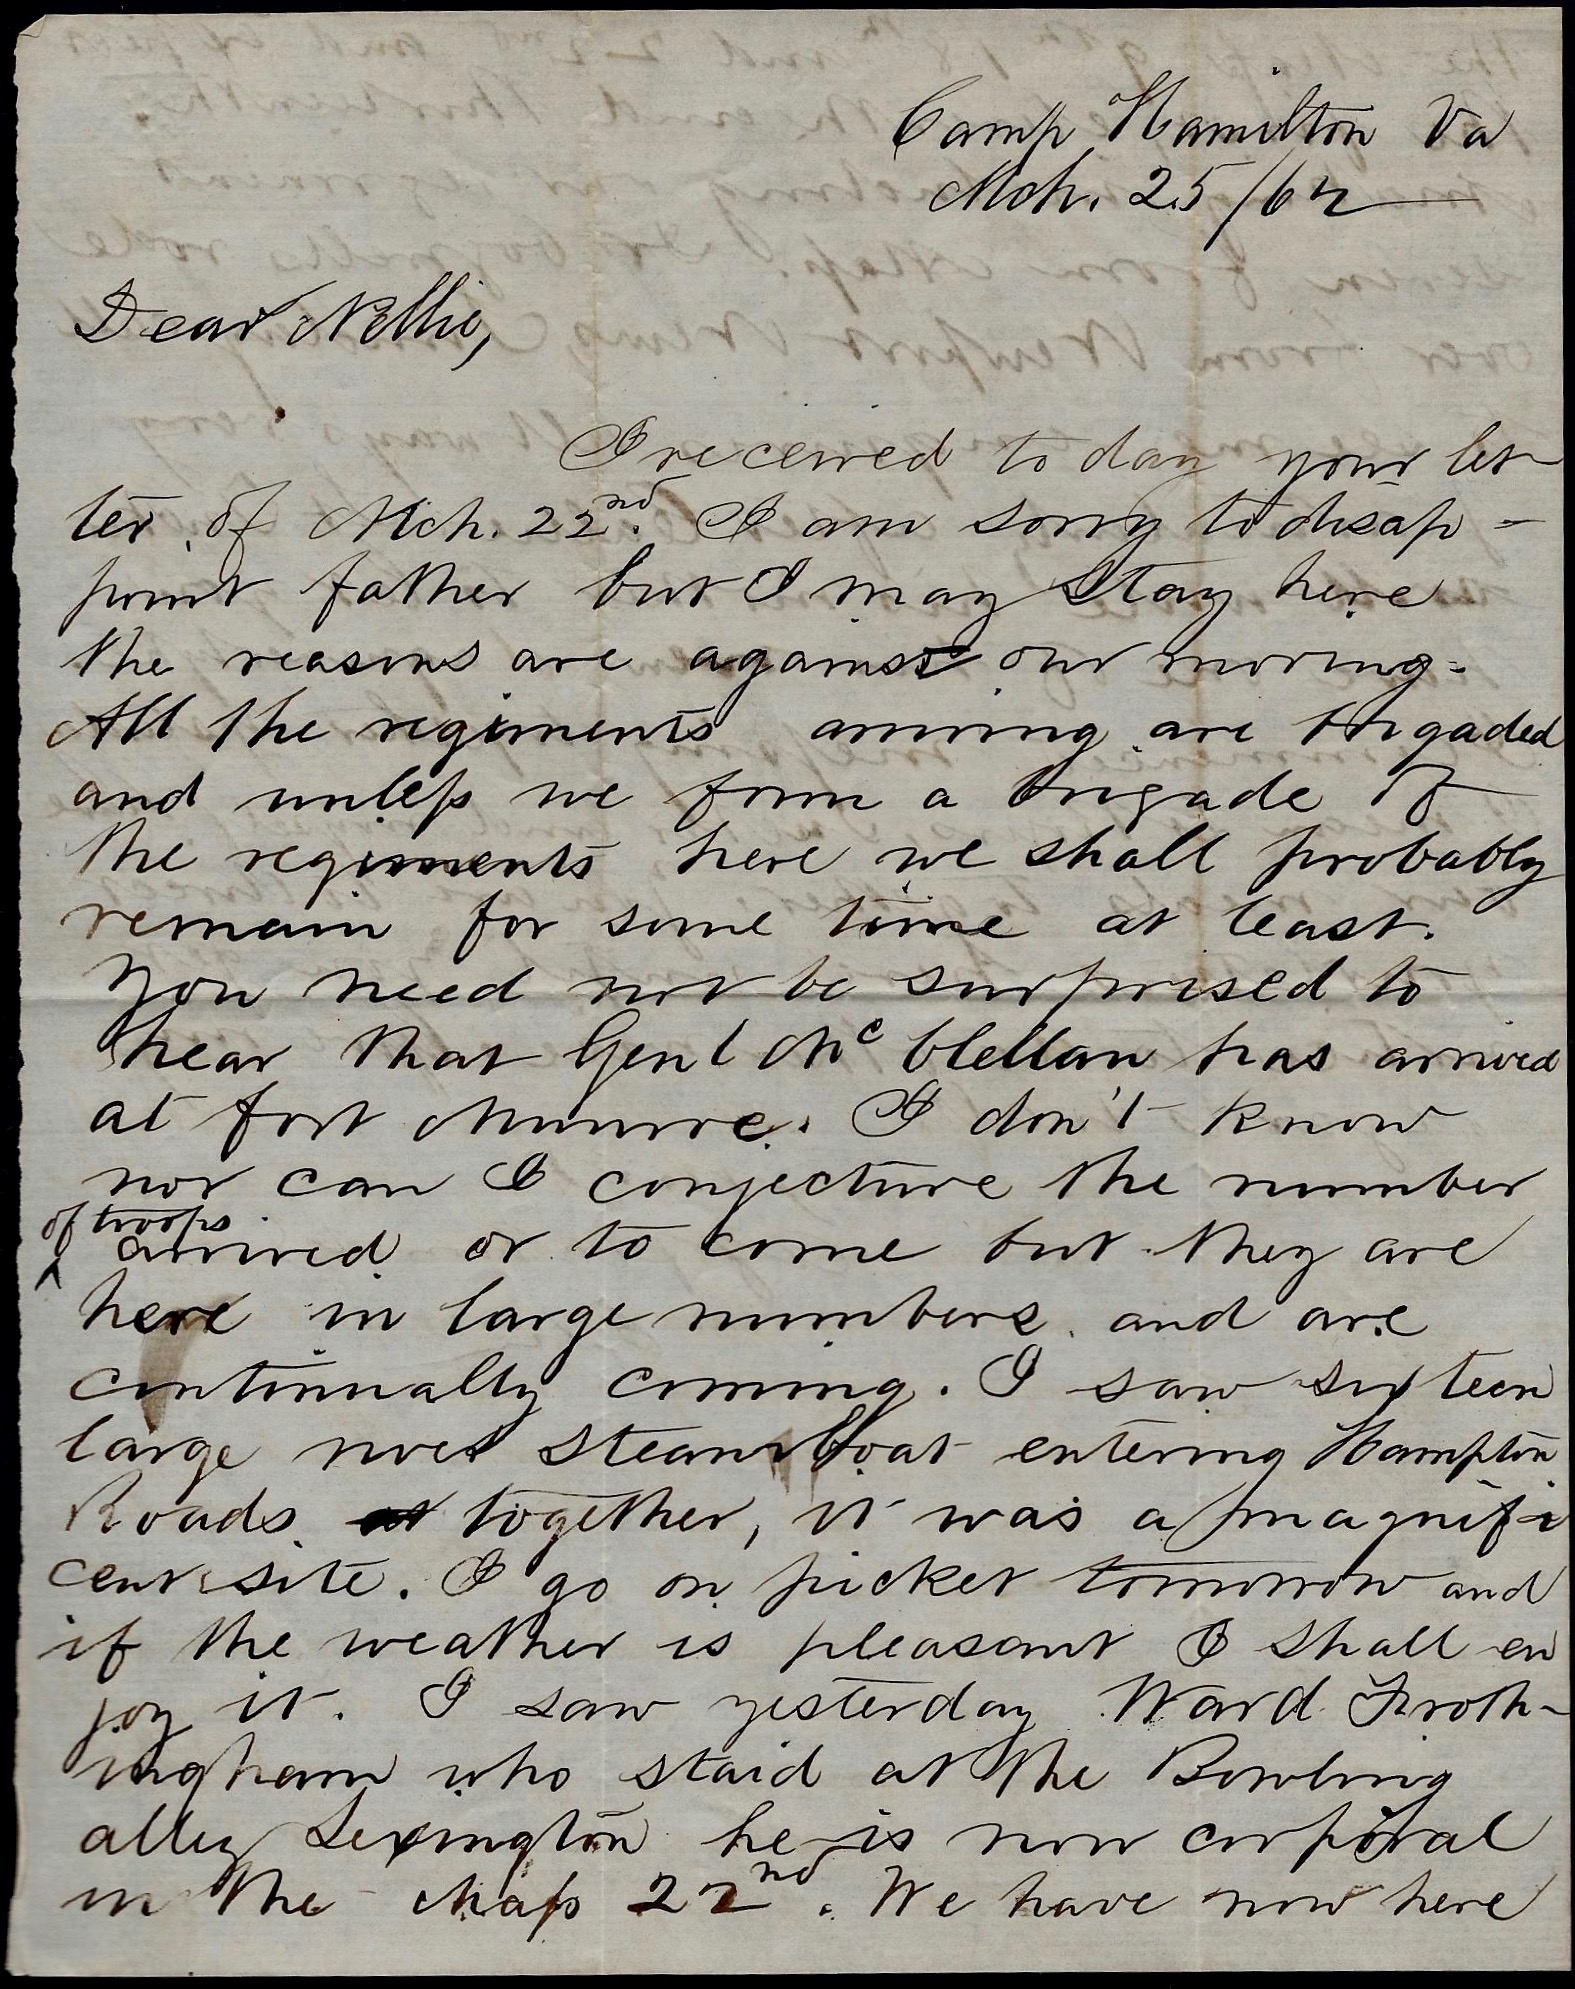 Camp Hamilton Va
Mch. 25/62
Dear Nellie,
I received to day your let-
ter of Mch. 22nd. I am sorry to disap-
point father but I may stay here
the reasons are against our moving.
All the regiments arriving are brigaded
and unless we form a brigade of
the regiments here we shall probably
remain for some time at least.
You need not be surprised to
hear that Genl McClellan has arrived
at fort Monroe. I don't know
nor can I conjecture the number
of troops
arrived or to come but they are
here in large numbers and are
continually coming. I saw sixteen
large river steamboat entering Hampton
Roads at together, it was a magnifi
cent site. I go on picket tomorrow and
if the weather is pleasant I shall en
joy it. I saw yesterday Ward Froth-
ingham who staid at the Bowling
alley Lexington he is now corporal
in the Mass 22nd. We have now here